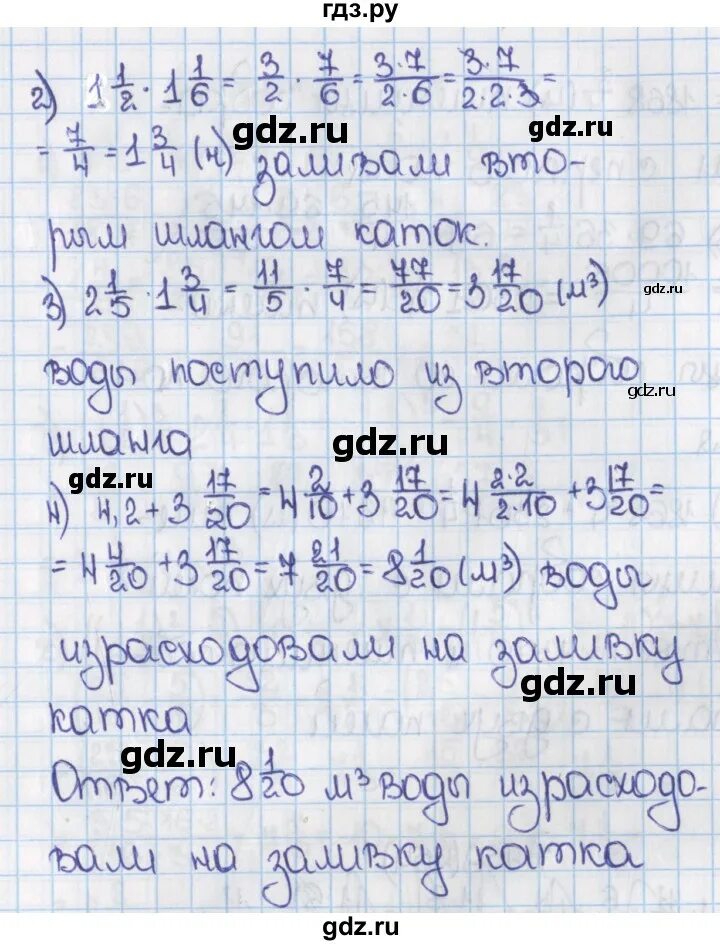 гдз.ру
2) 1 1/2 · 1 1/6 = 3/2 · 7/6 = 3·7/2·6 = 3·7/2·2·3 =
= 7/4 = 1 3/4 (ч) заливали вто-
gdz.ru
рым шлангом каток.
3) 2 1/5 · 1 3/4 = 11/5 · 7/4 = 77/20 = 3 17/20 (м³)
gdz.ru
воды поступило из второго
gdz.ru
шланга
gdz.ru
gdz.ru
4) 4,2 + 3 17/20 = 4 2/10 + 3 17/20 = 4 2·2/2·10 + 3 17/20 =
= 4 4/20 + 3 17/20 = 7 21/20 = 8 1/20 (м³) воды
израсходовали на заливку
gdz.ru
катка
gdz.ru
Ответ: 8 1/20 м³ воды израсходо-
вали на заливку катка
gdz.ru